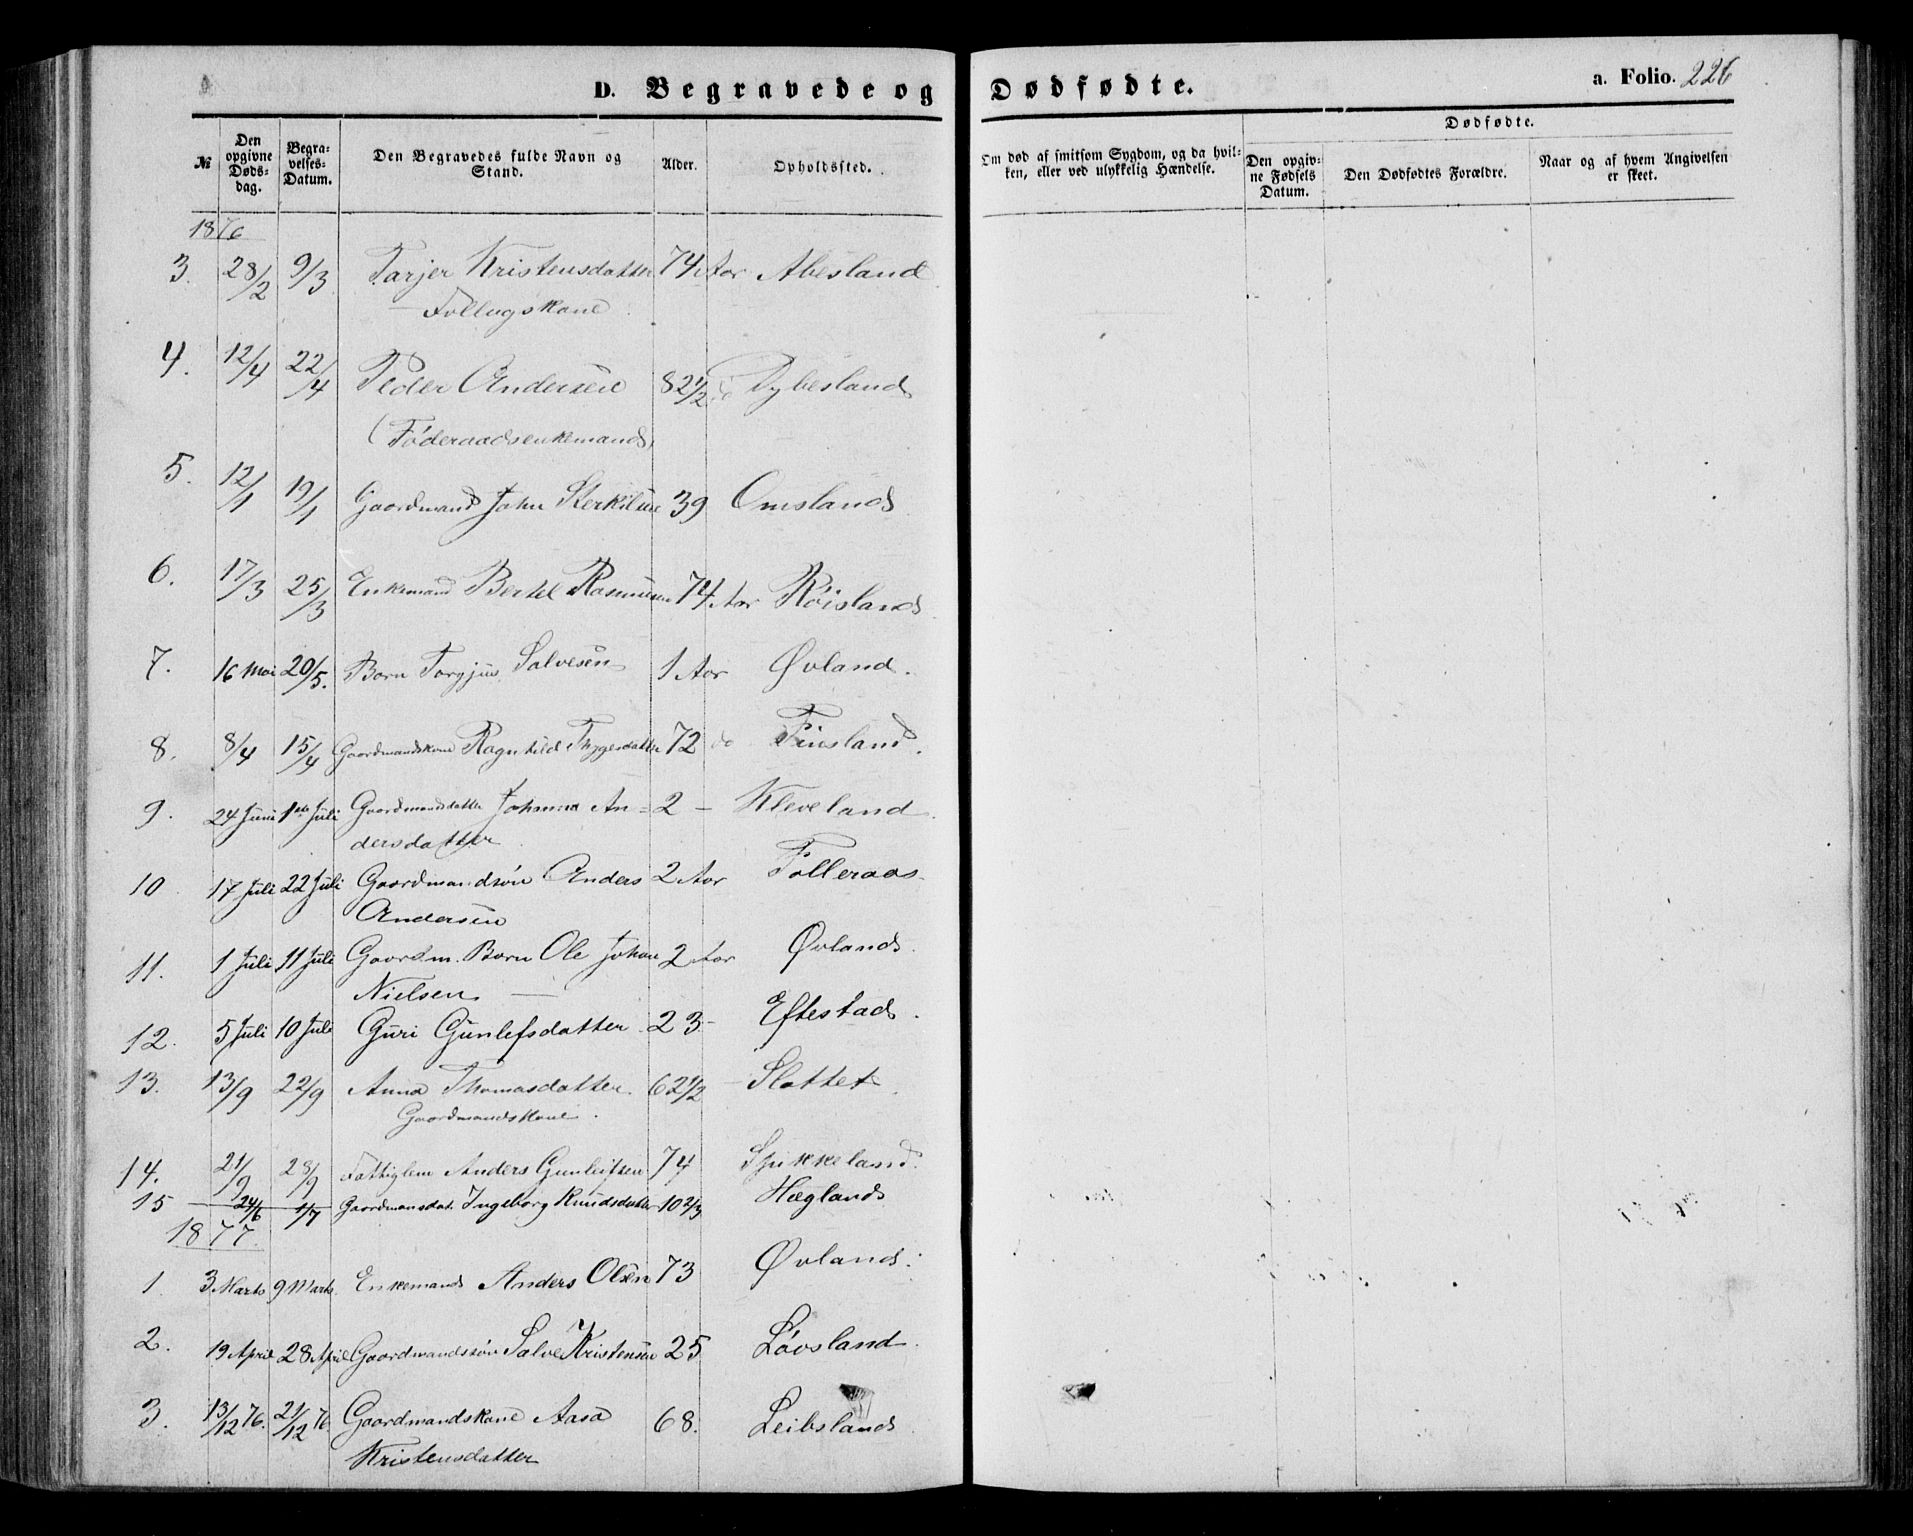 D. Begravede og Dødfødte. a. Folio. 226
№ Den opgivne Døds-dag. Begra-velses-Datum. Den Begravedes fulde Navn og Stand. Alder. Opholdssted. Om død af smitsom Sygdom, og da hvil-ken, eller ved ulykkelig Hændelse. Dødfødte. Den opgiv-ne Fødsels Datum. Den Dødfødtes Forældre. Naar og af hvem Angivelsen er skeet.
1876
3. 28/2 9/3 Tarjer Kristensdatter 74 Aar Abesland
Follugskone
4. 12/4 22/4 Peder Andersen 82 1/2 do Dybesland
(Föderaadsenkemand)
5. 12/1 19/1 Gaardmand John Sterkilsen 39 Omsland
6. 17/3 25/3 Enkemand Bertel Rasmussen 74 Aar Röisland
7. 16 Mai 20/5. Barn Torgjus Salvesen 1 Aar Øvland.
8. 8/4 15/4 Gaardmandskone Ragnhild Thygesdatter 72 do Finsland.
9. 24 Juni 1ste Juli Gaardmandsdatter Johanna An- 2 - Kleveland.
dersdatter
10 17 Juli 22 Juli Gaardmandsön Anders 2 Aar Folleraas
Andersen
11. 1 Juli 11 Juli Gaardm. Barn Ole Johan 2 Aar Øvland.
Nielsen
12. 5 Juli 10 Juli Guri Gunlefsdatter 23 - Eftestad.
13. 13/9 22/9 Anna Thomasdatter 62 1/2 - Slottet
Gaardmandskone.
14. 21/9 28/9 Fattiglem Anders Gunleifsen 74 Spikkeland.
15 24/6 1/7 Gaardmansdat. Ingeborg Knudsdatter 10 2/3 Hægland
1877.
1. 3 Marts 9 Marts. Enkemand Anders Olsen 73 Øvland.
2. 19 April 28 April Gaardmandsön Salve Kristensen 25 Lövsland.
3. 13/12 76. 21/12 76. Gaardmandskone Aasa 68. Leibsland
Kristensdatter